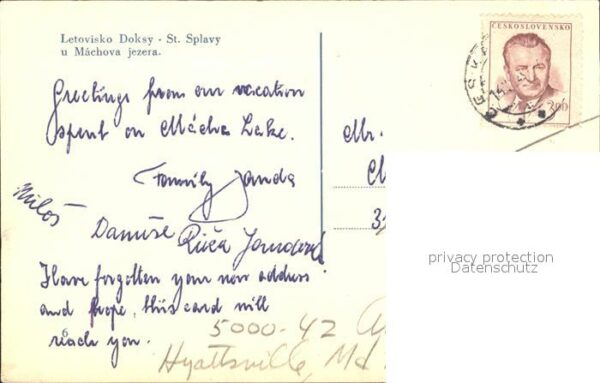 Letovisko Doksy - St. Splavy
u Máchova jezera.
Greetings from our vacation
spent on Mácha Lake.
Family Janda
Miloš
Danuše
Have forgotten your new address
and hope, this card will
reach you.
5000-42
Hyattsville, Md
Mr.
ČESKOSLOVENSKO
privacy protection
Datenschutz